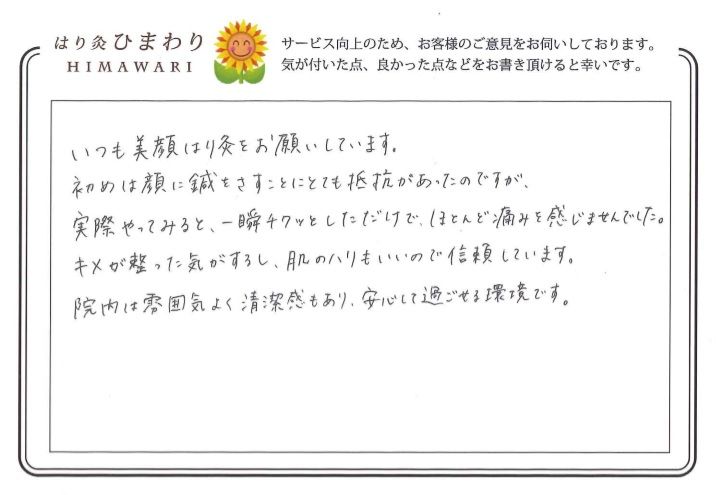 はり灸ひまわり
HIMAWARI
サービス向上のため、お客様のご意見をお伺いしております。
気が付いた点、良かった点などをお書き頂けると幸いです。
いつも美顔はり灸をお願いしています。
初めは顔に鍼をさすことにとても抵抗があったのですが、
実際やってみると、一瞬チクッとしただけで、ほとんど痛みを感じませんでした。
キメが整った気がするし、肌のハリもいいので信頼しています。
院内は雰囲気よく清潔感もあり、安心して過ごせる環境です。